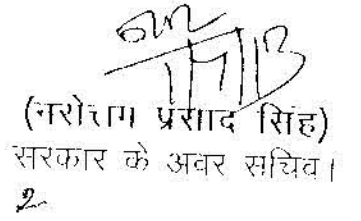 17/1/13
(नरोत्तम प्रसाद सिंह)
सरकार के अवर सचिव।
2